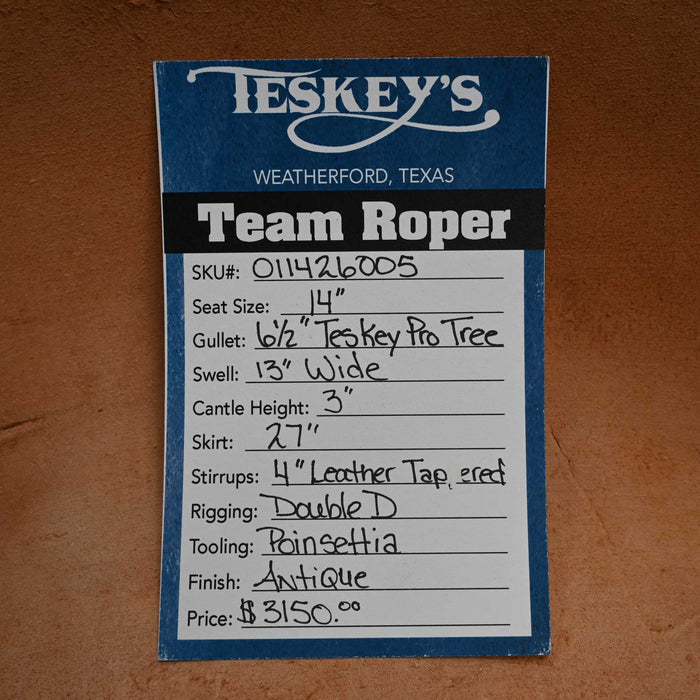 TESKEY'S
WEATHERFORD, TEXAS
Team Roper
SKU#: 011426005
Seat Size: 14"
Gullet: 6½" Teskey Pro Tree
Swell: 13" Wide
Cantle Height: 3"
Skirt: 27"
Stirrups: 4" Leather Tapered
Rigging: Double D
Tooling: Poinsettia
Finish: Antique
Price: $3150.00